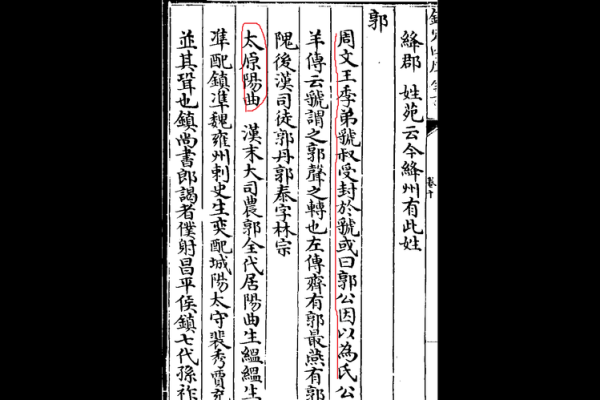 絳郡 姓苑云今絳州有此姓
郭
周文王季弟虢叔受封於虢或曰郭公因以為氏公
羊傳云虢謂之郭聲之轉也左傳齊有郭最燕有郭
隗後漢司徒郭丹郭泰字林宗
太原陽曲 漢末大司農郭全代居陽曲生縕縕生
準配鎮準魏雍州刺史生奕配城陽太守裴秀賈充
並其壻也鎮尚書郎謁者僕射昌平侯鎮七代孫祚